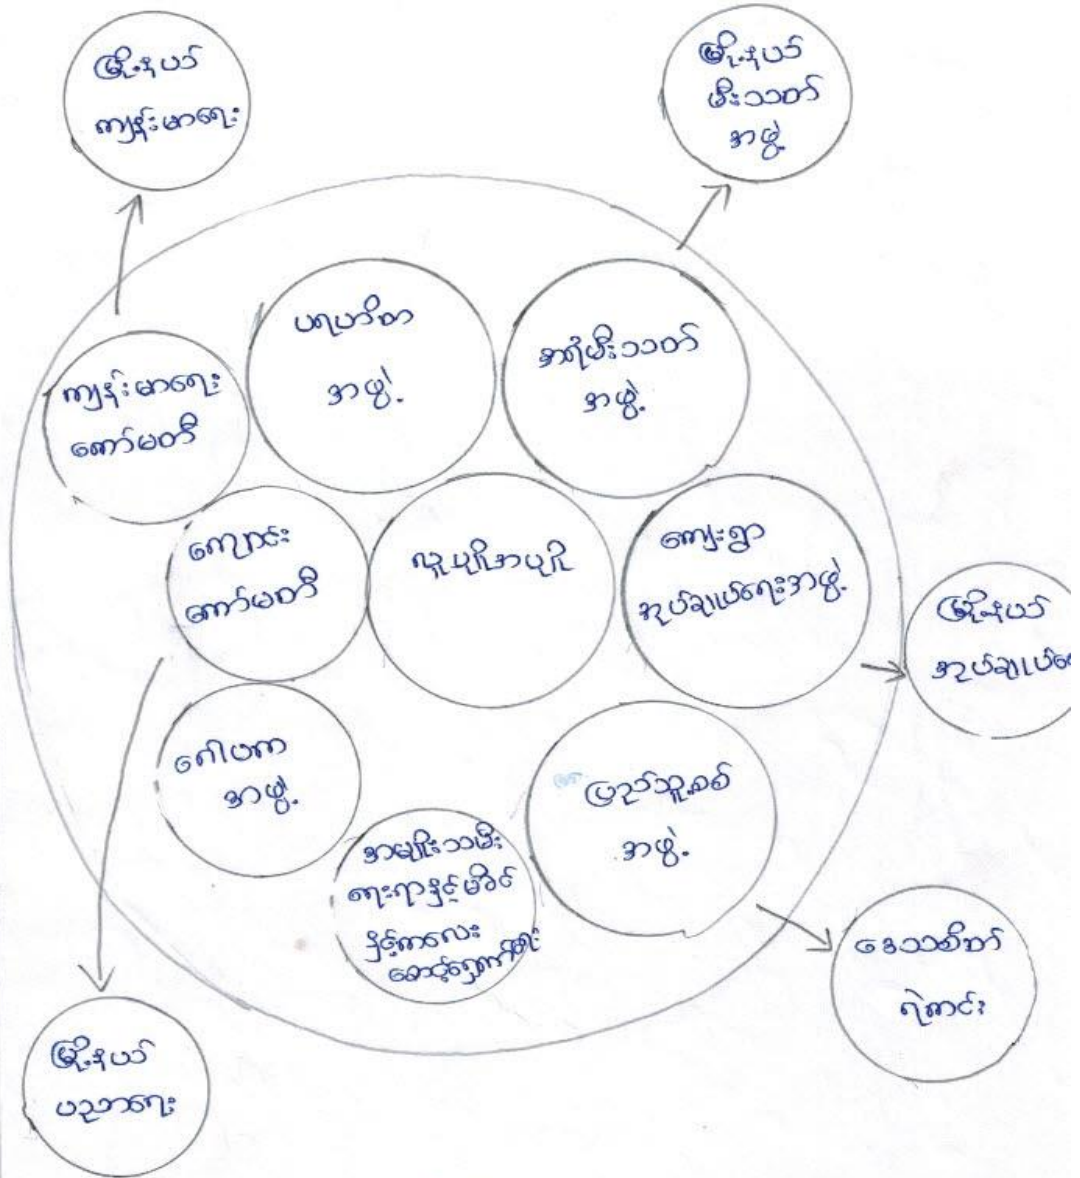 မြို့နယ်
ကျန်းမာရေး
မြို့နယ်
မီးသတ်
အဖွဲ့
ပရဟိတ
အဖွဲ့
အရံမီးသတ်
အဖွဲ့
ကျန်းမာရေး
ကော်မတီ
ကျောင်း
ကော်မတီ
လူပျိုအပျို
ကျေးရွာ
အုပ်ချုပ်ရေးအဖွဲ့
မြို့နယ်
အုပ်ချုပ်ရေ
ဂေါပက
အဖွဲ့
ပြည်သူ့စစ်
အဖွဲ့
အမျိုးသမီး
ရေးရာနှင့်မိခင်
နှင့်ကလေး
စောင့်ရှောက်ရေး
ဒေသစိတ်
ရဲစခင်း
မြို့နယ်
ပညာရေး